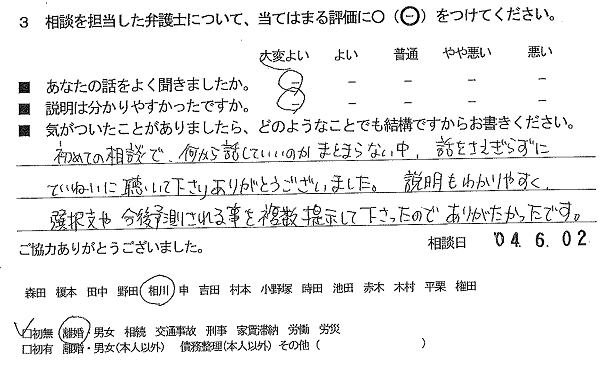 3 相談を担当した弁護士について、当てはまる評価に○(⊖)をつけてください。
大変よい よい 普通 やや悪い 悪い
■ あなたの話をよく聞きましたか。 － － － － －
■ 説明は分かりやすかったですか。 － － － － －
■ 気がついたことがありましたら、どのようなことでも結構ですからお書きください。
初めての相談で、何から話していいのかまとまらない中、話をさえぎらずに
ていねいに聴いて下さりありがとうございました。説明もわかりやすく、
選択支や今後予測される事を複数提示して下さったのでありがたかったです。
ご協力ありがとうございました。 相談日 '04.6.02
森田 榎本 田中 野田 相川 申 吉田 村本 小野塚 時田 池田 赤木 木村 平栗 権田
□初無 離婚・男女 相続 交通事故 刑事 家賃滞納 労働 労災
□初有 離婚・男女(本人以外) 債務整理(本人以外) その他( )